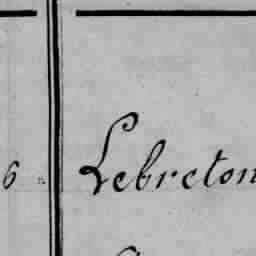 6 Lebreton